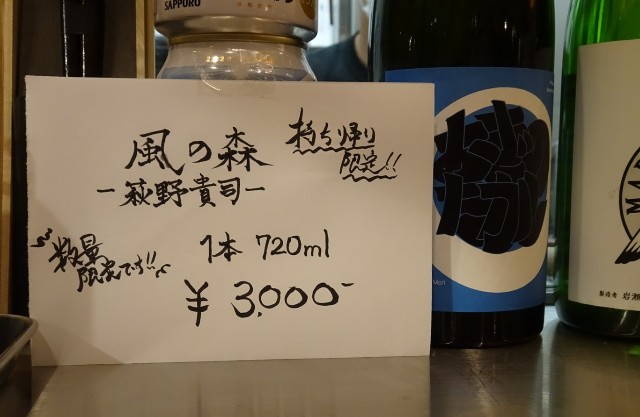 SAPPORO
風の森
持ち帰り
限定!!
-萩野貴司-
1本 720ml
数量
限定です!!
¥3,000-
Mori
製造者 岩瀬